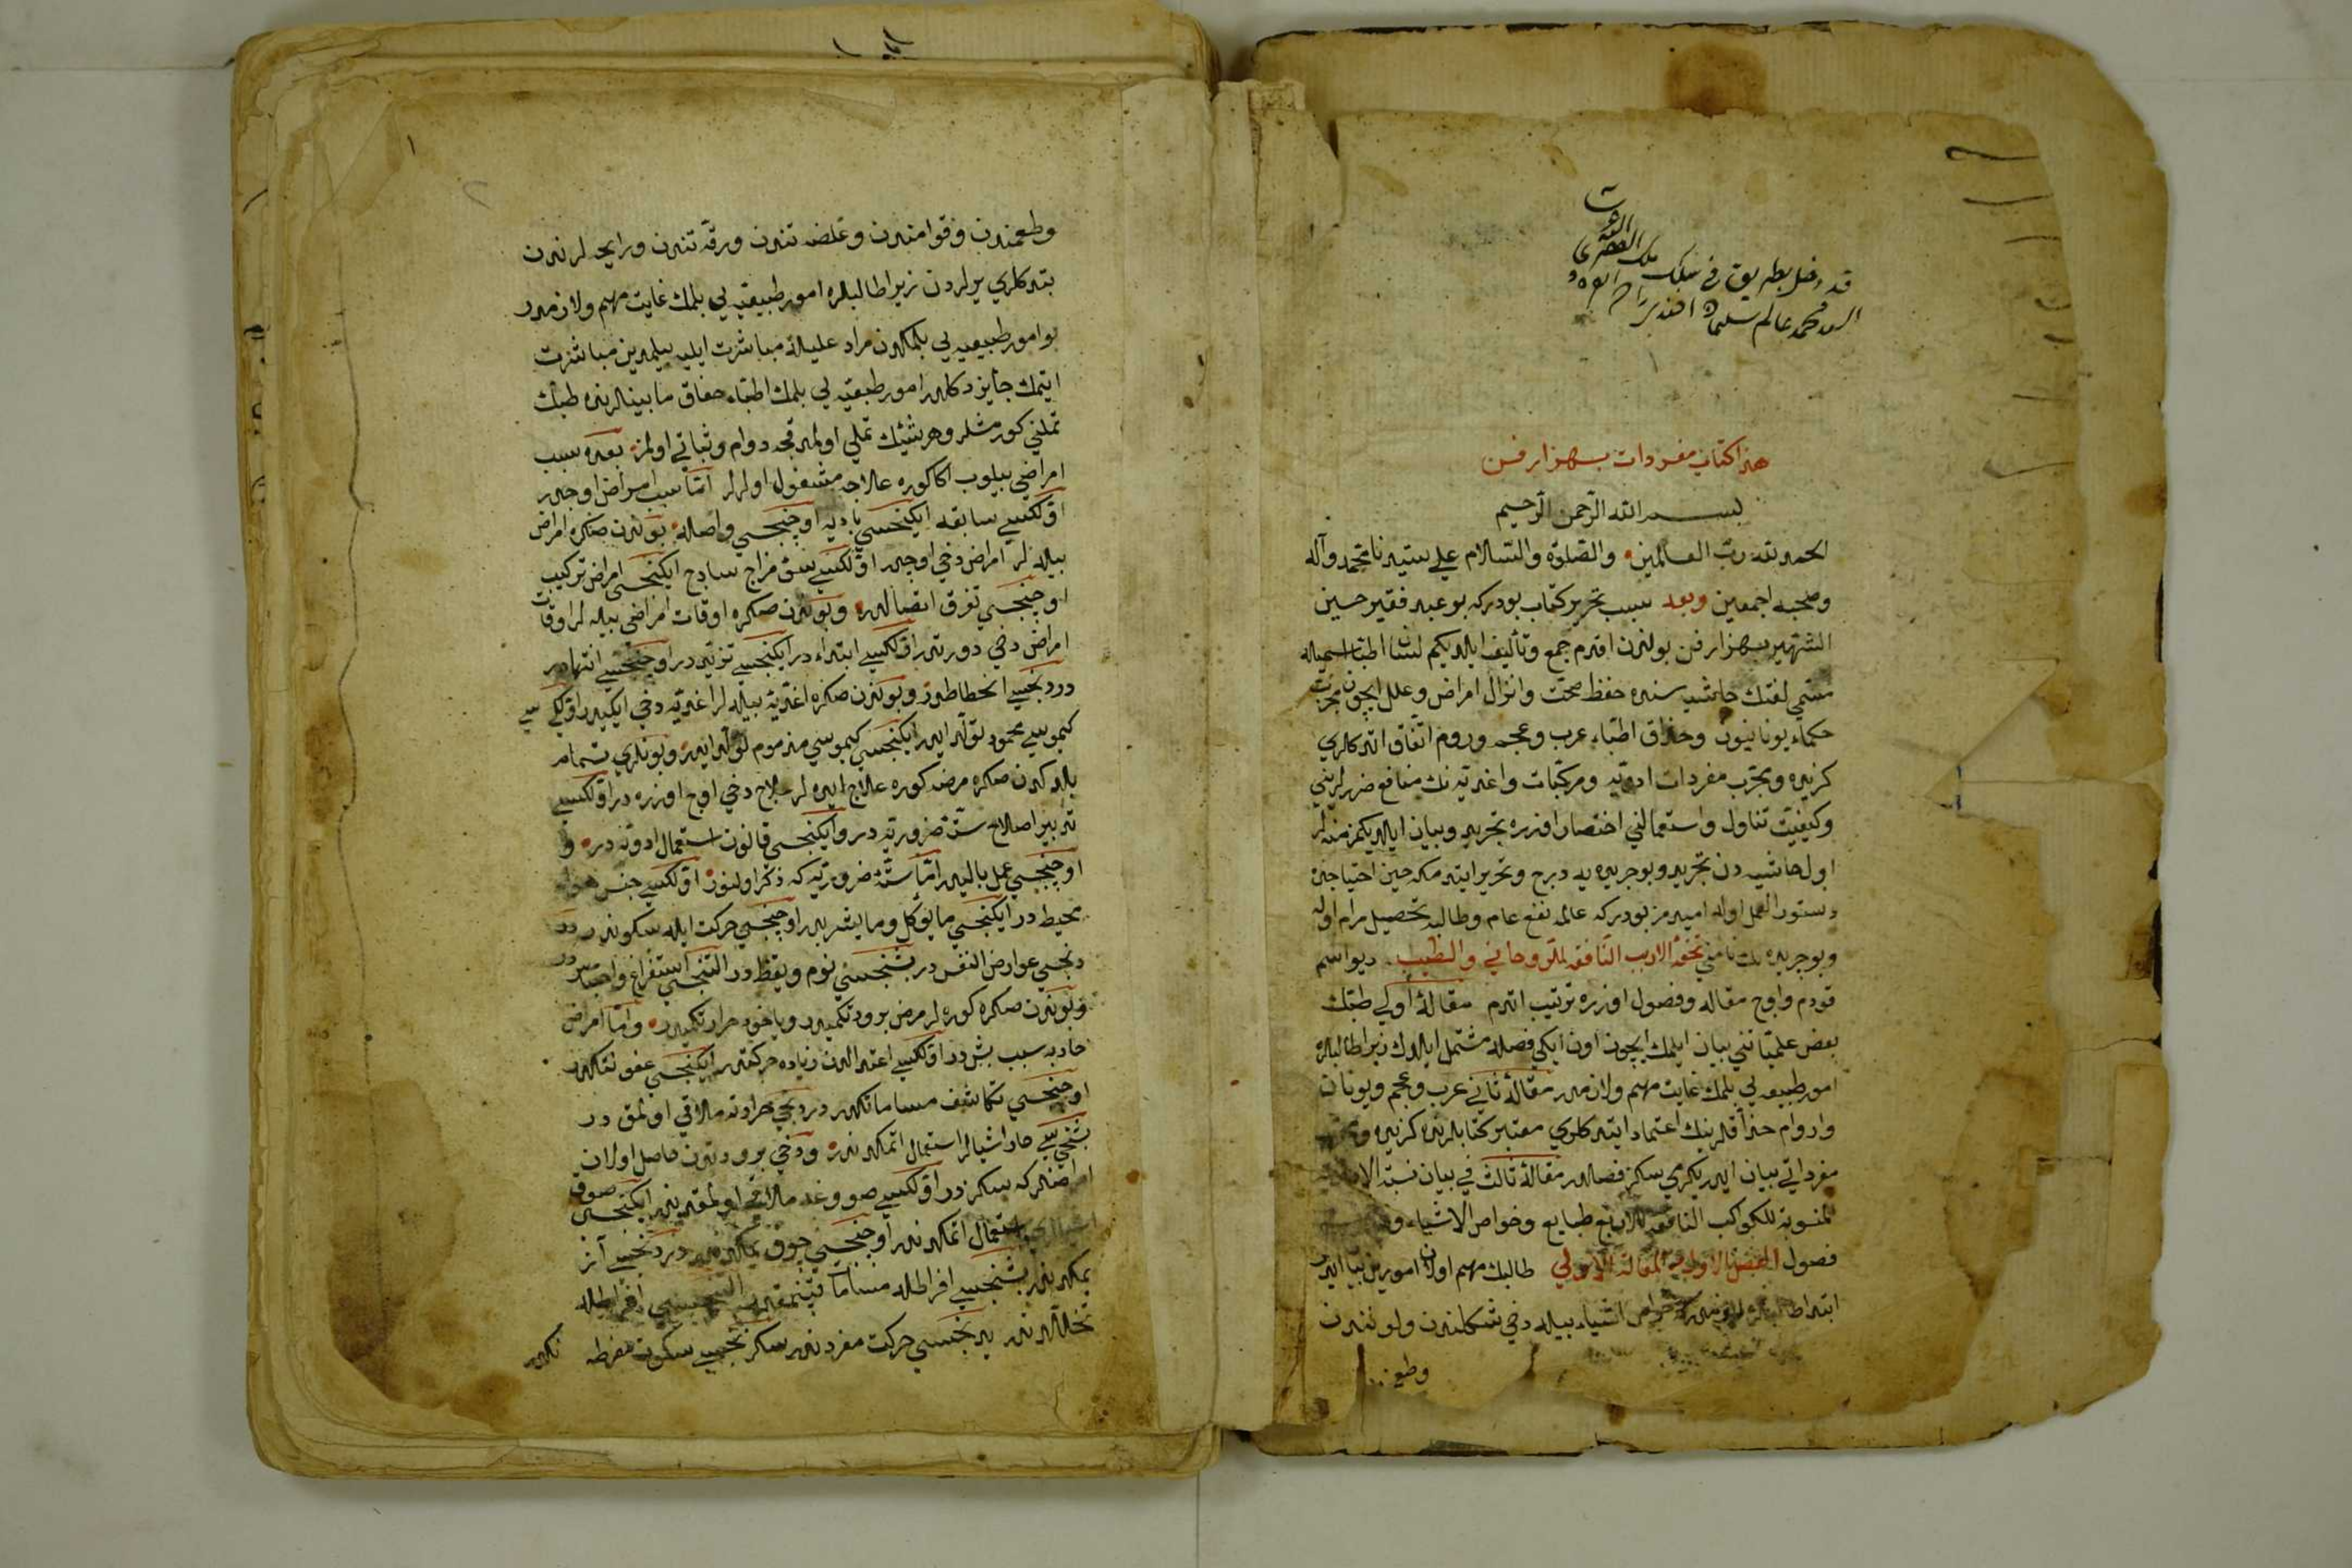 قد دخل بطريق في سلك ملك الفقير
السيد محمد عالم سليمان افندي
هذا كتاب مفردات بهزارفن
بسم الله الرحمن الرحيم
الحمد لله رب العالمين والصلوة والسلام علي سيدنا محمد وآله
وصحبه اجمعين وبعد سبب تحرير كتاب بودركه بو عبد فقير حسين
الشهير بهزارفن بوندن اقدم جمع وتأليف ايلديكم لسان اطبا اسميله
مسمي لغتك حاشيه سنده حفظ صحت وانزال امراض وعلل ايچون مجرب
حكماء يونانيون وحذاق اطباء عرب وعجم وروم اتفاق اتدكلري
كزيده ومجرب مفردات ادويه ومركبات واغديه نك منافع ضررلريني
وكيفيت تناول واستعمالني اختصار اوزره تحرير وبيان ايلديكمزدنصكره
اول حاشيه دن تجريد وبو جريده يه درج وتحرير ايتدمكه حين احتياجده
دستور العمل اوله اميدمز بودركه عالمه نفع عام وطالبه تحصيل مرام اوله
وبو جريده نك نامني تحفة الاريب النافعة للروحاني والطبيب ديو اسم
قودم واوچ مقاله وفصول اوزره ترتيب اتدم مقالهٔ اولي طبك
بعض علمياتني بيان ايلمك ايچون اون ايكي فصله مشتمل ايلدك زيرا طالبلره
امور طبيعيه يي بلمك غايت مهم ولازمدر مقالهٔ ثاني عرب وعجم ويونان
واروام حذاقلرينك اعتماد ايتدكلري معتبر كتابلرنده كزيده
مفرداتي بيان ايدر يكرمي سكز فصلدر مقالهٔ ثالث في بيان
المنسوبة للكواكب النافعة للاربع طبايع وخواص الاشياء
فصول الفصل الاول في المقالة الاولي طالبك مهم اولان امورين بيان ايدر
ابتدا طالبلره لازمدركه خواص اشياء بيله دخي شكلندن ولونندن
وطع
١
وطعمندن وقوامندن وغلضتندن ورقتندن ورايحه لرندن
بتدكلري يرلردن زيرا طالبلره امور طبيعيه يي بلمك غايت مهم ولازمدر
بو امور طبيعيه يي بلمكدن مراد عليله مباشرت ايليه بيلميين مباشرت
ايتمك جايز دكلدر امور طبيعيه يي بلمك اطباء حذاق مابينلرنده طبك
تملني كورمشلر وهر شيئك تملي اولمدقجه دوام وثباتي اولمز بعده سبب
امراضي بيلوب اكا كوره علاجه مشغول اولرلر اما سبب امراض اوچدر
اولكيسي سابقه ايكنجيسي باديه اوچنجيسي واصله بوندن صكره امراض
بيله لر امراض دخي اوچدر اولكيسي سؤ مزاج ساذج ايكنجيسي امراض تركيب
اوچنجيسي تفرق اتصالدر وبوندن صكره اوقات امراضي بيله لر اوقات
امراض دخي دورتدر اولكيسي ابتداء در ايكنجيسي تزيد در اوچنجيسي انتهادر
دردنجيسي انحطاطدر وبوندن صكره اغديه بيله لر اغديه دخي ايكيدر اولكيسي
كيموسي محمود تولد ايدر ايكنجيسي كيموسي مذموم تولد ايدر وبونلري تمام
بلدكدن صكره مرضه كوره علاج ايده لر علاج دخي اوچ اوزره در اولكيسي
تدبير اصلاح ستة ضروريه در وايكنجيسي قانون استعمال ادويه در و
اوچنجيسي عمل باليددر اما ستة ضروريه كه ذكر اولنور اولكيسي جنس هواء
محيط در ايكنجيسي مايؤكل ومايشربدر اوچنجيسي حركت ايله سكوندر درد
دنجيسي عوارض النفس در بشنجيسي نوم ويقظه در التنجيسي استفراغ واحتباس در
وبوندن صكره كوره لر مرض برودتكميدر وياخود حرارتكميدر واما امراض
حاده سبب بشدر اولكيسي اعتدالدن زياده حركتدر ايكنجيسي عفونتكدر
اوچنجيسي تكاثف مساماتكدر دردنجي حرارته ملاقي اولمق در
بشنجيسي حار اشيالر استعمال اتمكدندر ودخي برودتدن حاصل اولان
امراضلركه سكزدر اولكيسي صووغه ملاقي اولمقدندر ايكنجيسي صوق
استعمال اتمكدندر اوچنجيسي چوق يمكدندر دردنجيسي آز
يمكدندر بشنجيسي افراطله مسامات
تحللدندر يدنجيسي حركت مفرددندر سكزنجيسي سكون مفرطه
نكدر